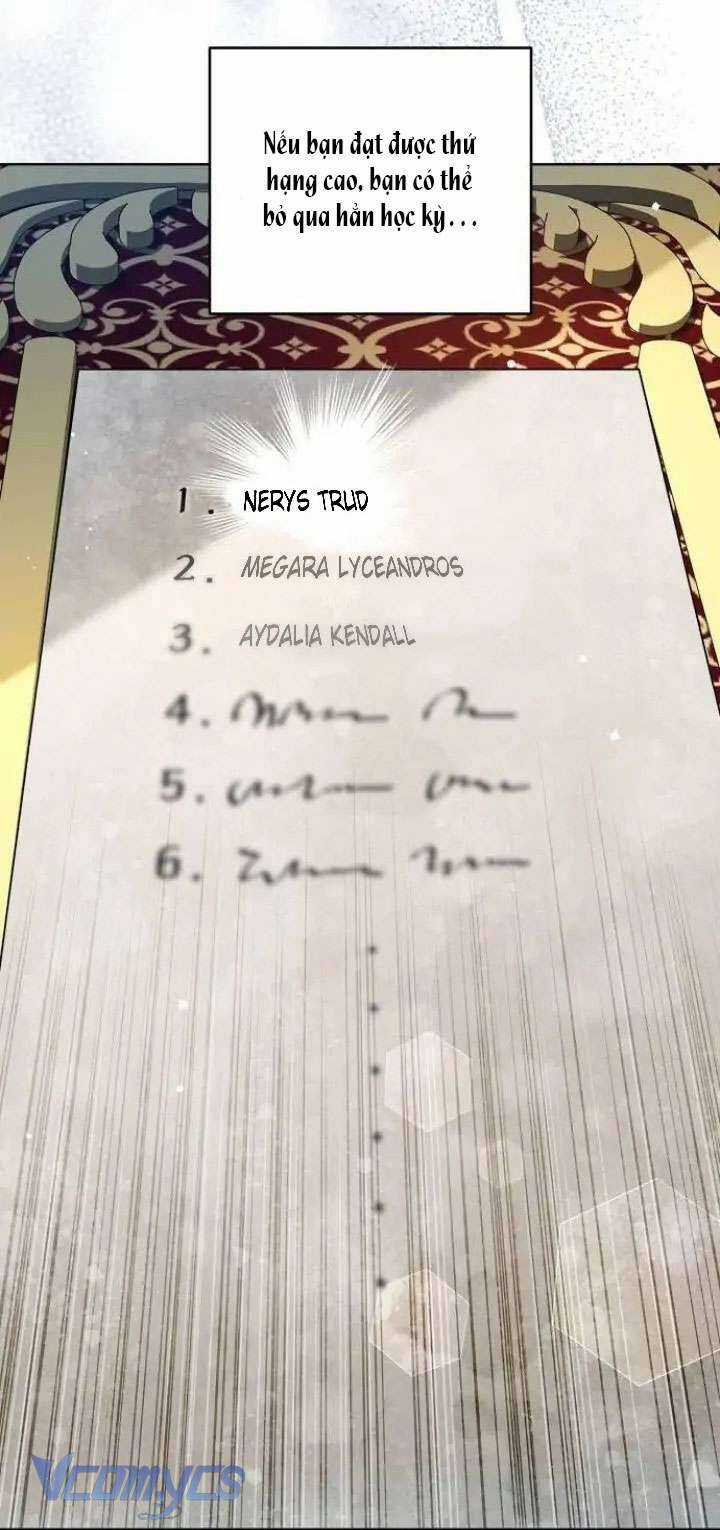 Nếu bạn đạt được thứ
hạng cao, bạn có thể
bỏ qua hẳn học kỳ...
1. NERYS TRUD
2. MEGARA LYCEANDROS
3. AYDALIA KENDALL
4.
5.
6.
Vcomycs